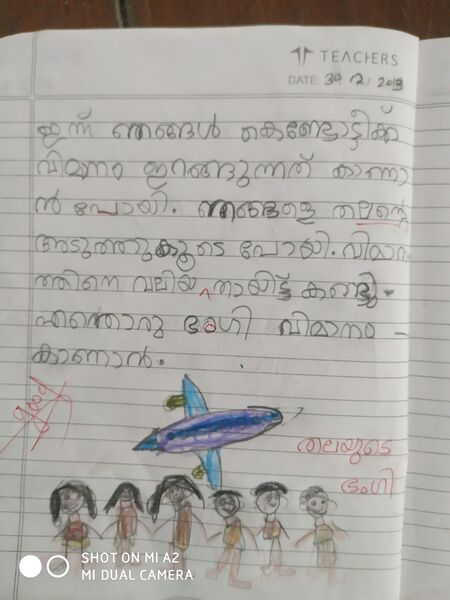 TEACHERS
DATE: 30 12 2019
ഇന്ന് ഞങ്ങൾ കൊണ്ടോട്ടിക്ക്
വിമാനം ഇറങ്ങുന്നത് കാണാ
ൻ പോയി. ഞങ്ങളെ തലന്റെ
അടുത്തുകൂടെ പോയി. വിമാന
ത്തിനെ വലിയ തായിട്ട് കണ്ടു.
എന്തൊരു ഭംഗി വിമാനം
കാണാൻ.
good
തലയുടെ
ഭംഗി
SHOT ON MI A2
MI DUAL CAMERA